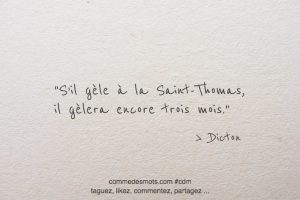 "S'il gèle à la Saint-Thomas,
il gèlera encore trois mois."
> Dicton
commedesmots.com #cdm
taguez, likez, commentez, partagez ...